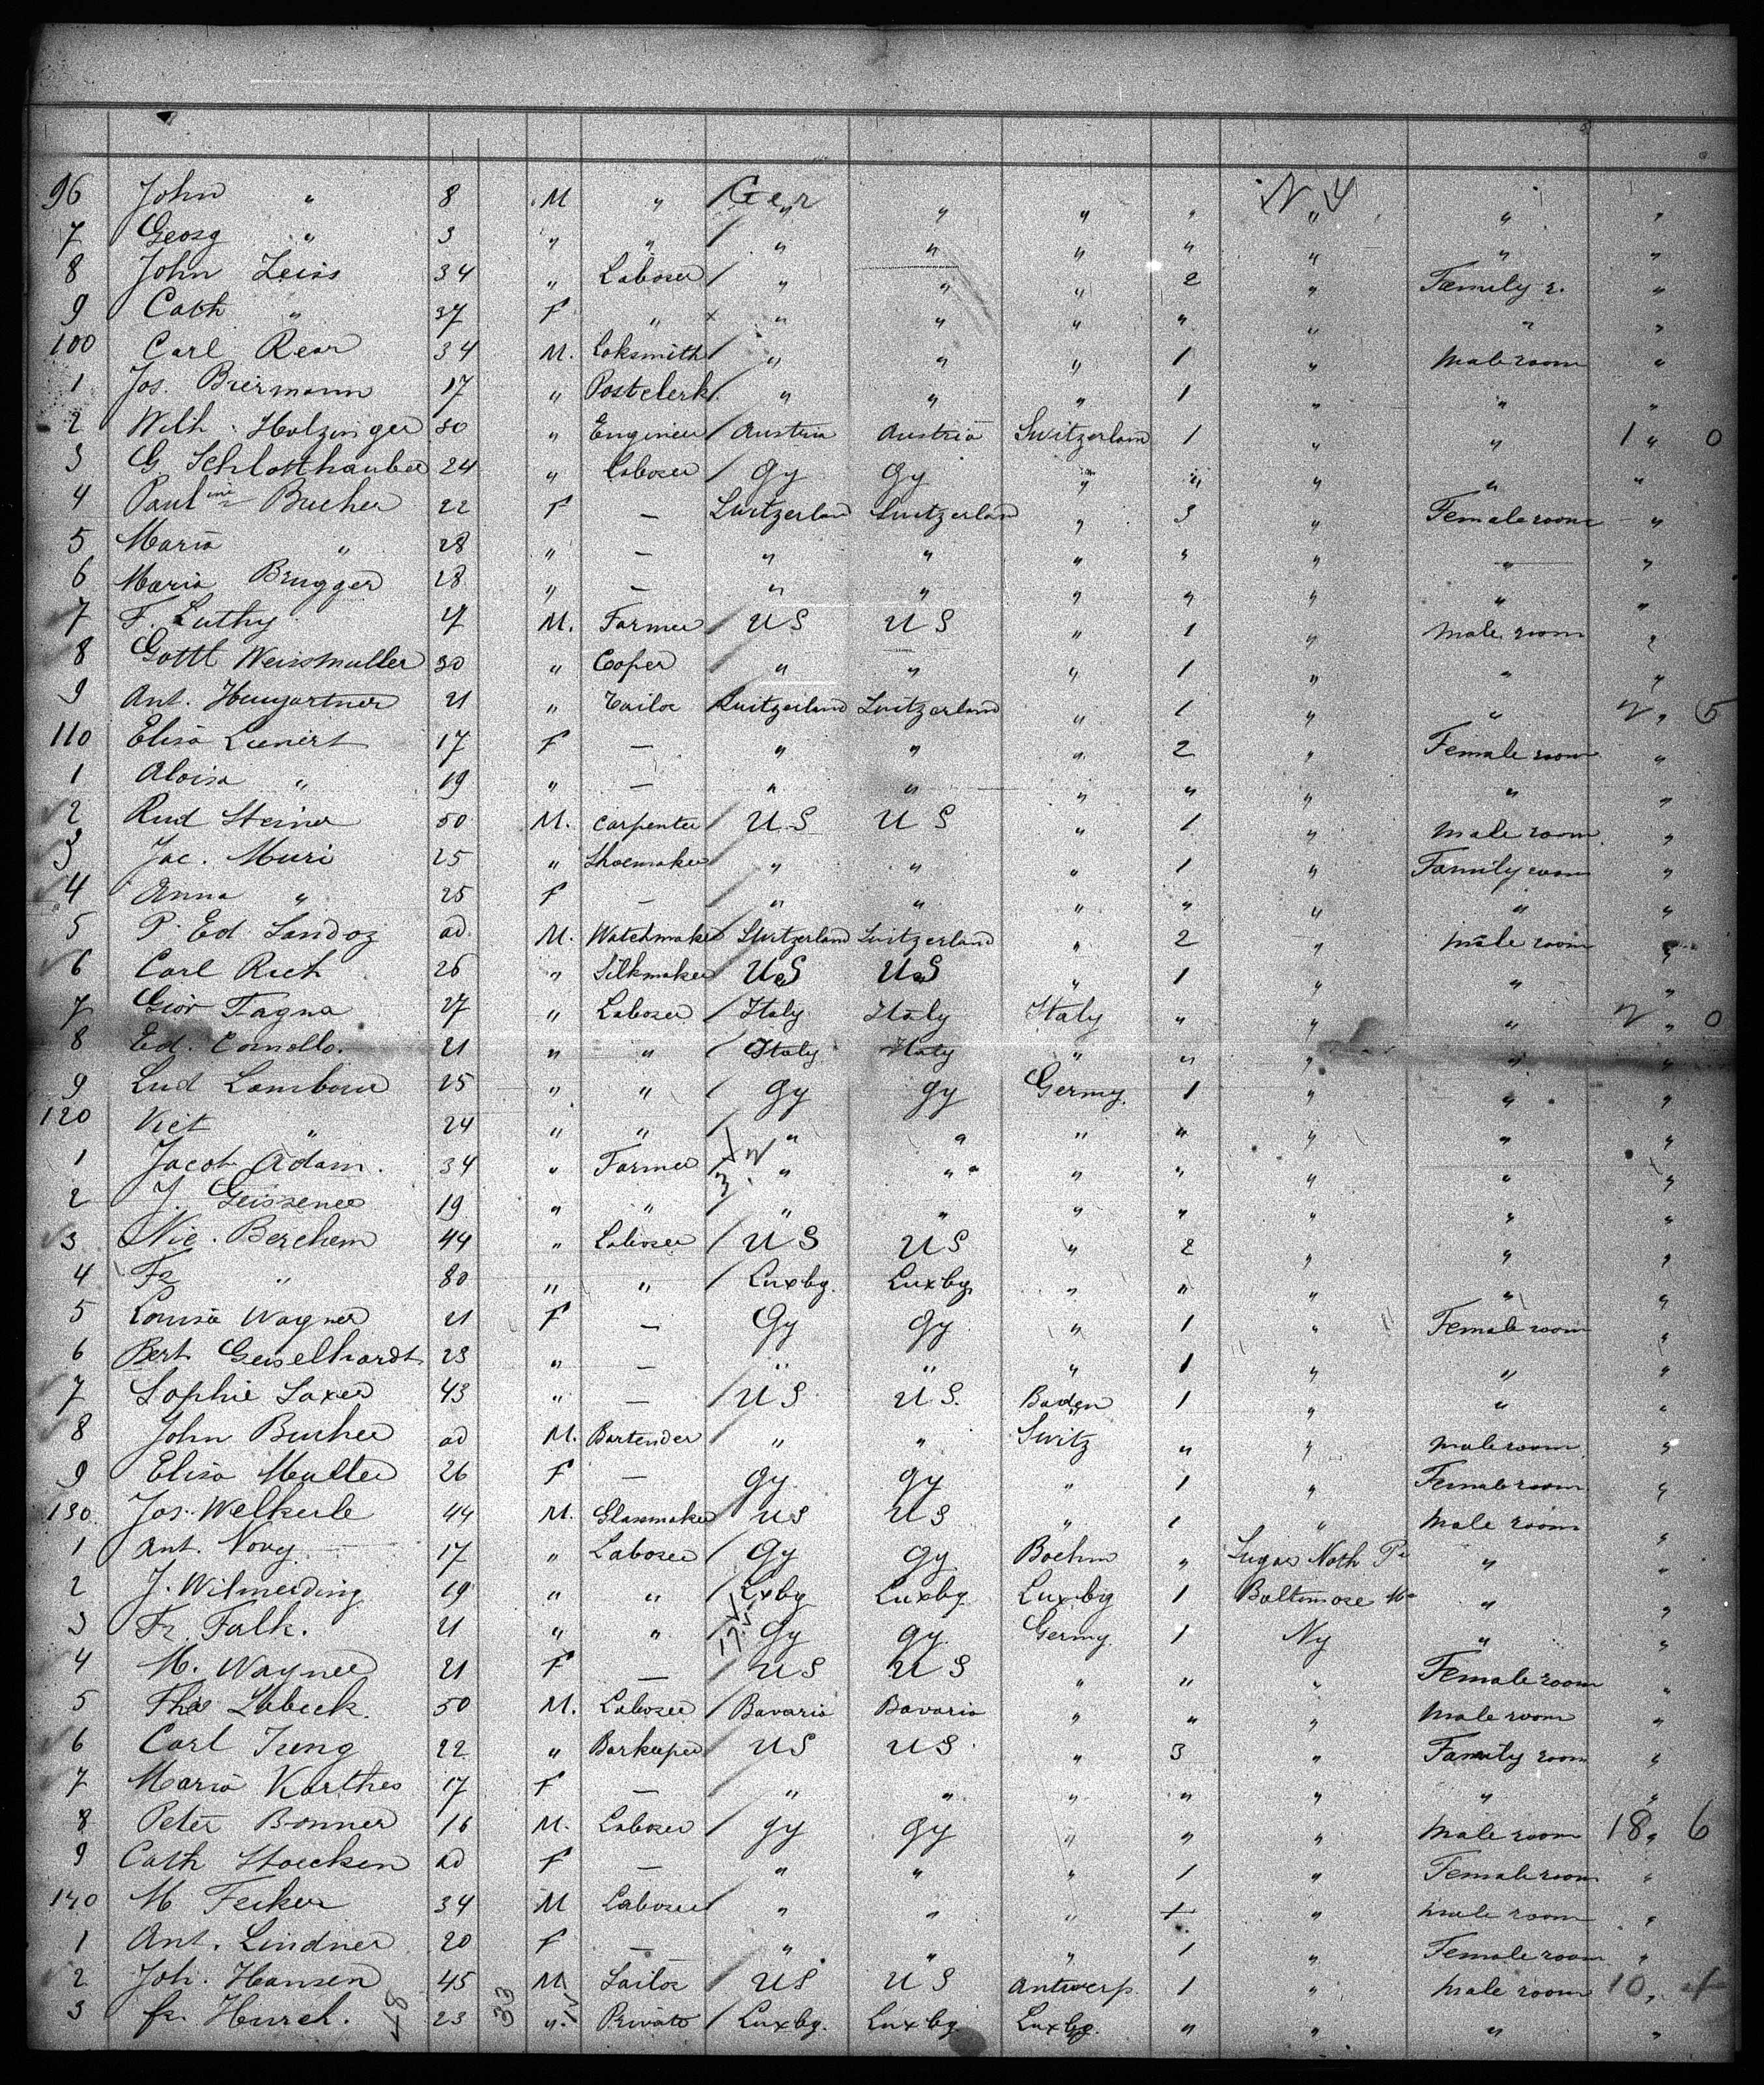 96 John " 8 M " Ger " " " " N Y " " "
7 Georg " 3 " " " " " " " " "
8 John Zeiss 34 " Laborer " " " 2 " Family r. "
9 Cath " 37 F " " " " " " " "
100 Carl Rear 34 M. Loksmith " " " 1 " Male room "
1 Jos. Biermann 17 " Postclerk " " " 1 " " "
2 Wilh. Holzinger 30 " Enginer Austria Austria Switzerland 1 " " 1 " 0
3 G Schlotthauber 24 " Laborer Gy Gy " " " " "
4 Pauline Bucher 22 F — Switzerland Switzerland " 3 " Female room "
5 Maria " 28 " — " " " " " " "
6 Maria Brugger 28 " — " " " " " " "
7 F. Luthy M. Farmer U S U S " 1 " Male room "
8 Gottl Weissmuller 30 " Cooper " " " 1 " " "
9 Ant. Hungartner 21 " Tailor Switzerland Switzerland " 1 " " 2 " 5
110 Elisa Lienert 17 F — " " " 2 " Female room "
1 Aloisa " 19 " — " " " " " " "
2 Rud Steiner 50 M. Carpenter U S U S " 1 " Male room "
3 Jac. Muri 25 " Shoemaker " " " 1 " Family room "
4 Anna " 25 F — " " " " " " "
5 P. Ed Sandoz ad. M. Watchmaker Switzerland Switzerland " 2 " Male room "
6 Carl Rich 26 " Silkmaker U S U S " 1 " " "
7 Giov Fagna 27 " Laborer Italy Italy Italy " " " 2 " 0
8 Ed. Comollo. 21 " " Italy Italy " " " " "
9 Lud Lambour 25 " " Gy Gy Germy. 1 " " "
120 Viet " 24 " " " " " " " " "
1 Jacob Adam. 34 " Farmer " " " " " " "
2 J. Geissener 19 " " " " " " " " "
3 Nic. Berchem 44 " Laborer U S U S " 2 " " "
4 Fr " 80 " " Luxbg. Luxbg. " " " " "
5 Louisa Wagner 21 F — Gy Gy " 1 " Female room "
6 Bert Geiselhardt 23 " — " " " 1 " " "
7 Sophie Saxer 43 " — U S U S. Baden 1 " " "
8 John Bucher ad M. Bartender " " Switz " " Male room "
9 Elisa Muller 26 F — Gy. Gy " 1 " Female room "
130. Jos. Welkerle 44 M. Glasmaker U S U S " 1 " Male room "
1 Ant. Novy 17 " Laborer Gy Gy Boehm " Sugar Noth Pa " "
2 J. Wilmerding 19 " " Lxbg Luxbg Luxbg 1 Baltimore Md " "
3 Fr. Falk. 21 " " Gy Gy. Germy. 1 Ny " "
4 M. Wagner 21 F — U S U S " " " Female room "
5 Labeck. 50 M. Laborer Bavaria Bavaria " " " Male room "
6 Carl Jung 22 " Barkeeper U S U S " 3 " Family room "
7 Maria Karthes 17 F — " " " " " " "
8 Peter Bonner 16 M. Laborer Gy Gy " " " Male room 18 " 6
9 Cath Stoecken ad F — " " " 1 " Female room "
140 M Fecker 34 M Laborer " " " 1 " Male room "
1 Ant. Lindner 20 F — " " " 1 " Female room "
2 Joh. Hansen 45 M Sailor U S U S Antwerp. 1 " Male room 10 "
3 fr. Hirsch. 23 33 " Private Luxbg. Luxbg. Luxbg. " " " "